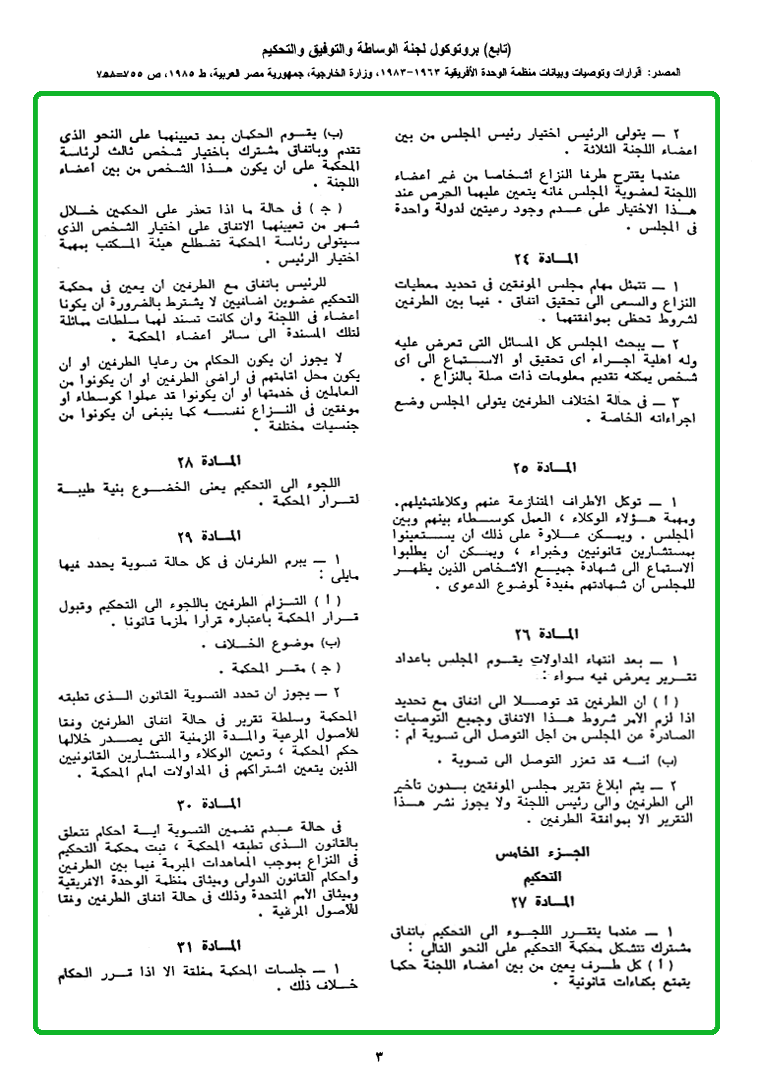 (تابع) بروتوكول لجنة الوساطة والتوفيق والتحكيم
المصدر: قرارات وتوصيات وبيانات منظمة الوحدة الأفريقية ١٩٦٣-١٩٨٣، وزارة الخارجية، جمهورية مصر العربية، ط ١٩٨٥، ص ٧٥٥=٧٥٨
٢ ــ يتولى الرئيس اختيار رئيس المجلس من بين
اعضاء اللجنة الثلاثة .
عندما يقترح طرفا النزاع أشخاصا من غير أعضاء
اللجنة لعضوية المجلس فانه يتعين عليهما الحرص عند
هــذا الاختيار على عــدم وجود رعيتين لدولة واحدة
فى المجلس .
المــادة ٢٤
١ ــ تتمثل مهام مجلس الموفقين فى تحديد معطيات
النزاع والسعى الى تحقيق اتفاق . فيما بين الطرفين
لشروط تحظى بموافقتهما .
٢ ــ يبحث المجلس كل المسائل التى تعرض عليه
وله اهلية اجــراء اى تحقيق او الاستماع الى اى
شخص يمكنه تقديم معلومات ذات صلة بالنزاع .
٣ ــ فى حالة اختلاف الطرفين يتولى المجلس وضع
اجراءاته الخاصة .
المــادة ٢٥
١ ــ توكل الأطراف المتنازعة عنهم وكلاءلتمثيلهم.
ومهمة هــؤلاء الوكلاء ، العمل كوســطاء بينهم وبين
المجلس . ويمكن علاوة على ذلك ان يســتعينوا
بمستشارين قانونيين وخبراء ، ويمكــن ان يطلبوا
الاستماع الى شهادة جميــع الأشخاص الذين يظهــر
للمجلس ان شهادتهم مفيدة لموضوع الدعوى .
المــادة ٢٦
١ ــ بعد انتهاء المداولات يقــوم المجلس باعداد
تقــرير يعرض فيه سواء :
( أ ) ان الطرفين قد توصــلا الى اتفاق مع تحديد
اذا لزم الامر شروط هــذا الاتفاق وجميع التوصيات
الصادرة عن المجلس من اجل التوصل الى تسوية ام :
(ب) أنــه قد تعزر التوصل الى تسوية .
٢ ــ يتم ابلاغ تقرير مجلس الموفقين بــدون تأخير
الى الطرفين والى رئيس اللجنة ولا يجوز نشر هــذا
التقرير الا بموافقة الطرفين .
الجــزء الخامس
التحكيم
المــادة ٢٧
١ ــ عندما يتقــرر اللجــوء الى التحكيم باتفاق
مشترك تتشكل محكمة التحكيم على النحو التالى :
( أ ) كل طــرف يعين من بين أعضاء اللجنة حكما
يتمتع بكفاءات قانونية .
(ب) يقــوم الحكمان بعد تعيينهما على النحو الذى
تقدم وباتفاق مشترك باختيار شخص ثالث لرئاسة
المحكمة على ان يكون هــذا الشخص من بين أعضاء
اللجنة .
( جـ ) فى حالة ما اذا تعذر على الحكمين خــلال
شهر من تعيينهما الاتفاق على اختيار الشخص الذى
سيتولى رئاسة المحكمة تضطلع هيئة المكتب بمهمة
اختيار الرئيس .
للرئيس باتفاق مع الطرفين ان يعين فى محكمة
التحكيم عضوين اضافيين لا يشترط بالضرورة ان يكونا
اعضاء فى اللجنة وان كانت تسند لهما سلطات مماثلة
لتلك المسندة الى سائر أعضاء المحكمة .
لا يجوز ان يكون الحكام من رعايا الطرفين او ان
يكون محل اقامتهم فى أراضى الطرفين او ان يكونوا من
العاملين فى خدمتها او ان يكونوا قد عملوا كوسطاء أو
موفقين فى النــزاع نفســه كما ينبغى ان يكونوا من
جنسيات مختلفة .
المــادة ٢٨
اللجوء الى التحكيم يعنى الخضــوع بنية طيبــة
لقــرار المحكمة .
المــادة ٢٩
١ ــ يبرم الطرفان فى كل حالة تسوية يحدد فيها
مايلى :
( أ ) التــزام الطرفين باللجوء الى التحكيم وقبول
قــرار المحكمة باعتباره قرارا ملزما قانونا .
(ب) موضوع الخــلاف .
( جـ ) مقــر المحكمة .
٢ ــ يجوز ان تحدد التسوية القانون الــذى تطبقه
المحكمة وسلطة تقرير فى حالة اتفاق الطرفين وفقا
للأصول المرعية والمــدة الزمنية التى يصــدر خلالها
حكم المحكمة ، وتعين الوكلاء والمستشارين القانونيين
الذين يتعين اشتراكهم فى المداولات امام المحكمة .
المــادة ٣٠
فى حالة عــدم تضمين التسوية ايــة احكام تتعلق
بالقانون الــذى تطبقه المحكمة ، تبت محكمة التحكيم
فى النزاع بموجب المعاهدات المبرمة فيما بين الطرفين
وأحكام القانون الدولى وميثاق منظمة الوحدة الافريقية
وميثاق الأمم المتحدة وذلك فى حالة اتفاق الطرفين وفقا
للأصول المرغية .
المــادة ٣١
١ ــ جلسات المحكمة مغلقة الا اذا قــرر الحكام
خــلاف ذلك .
٣